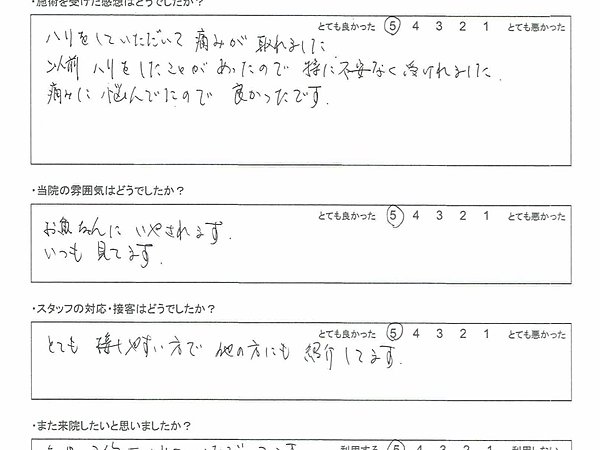 ・施術を受けた感想はどうでしたか？
とても良かった ⑤ 4 3 2 1 とても悪かった
ハリをしていただいて 痛みが 取れました
以前 ハリをしたことが あったので 特に不安なく 受けれました.
痛みに 悩んでたので 良かったです.
・当院の雰囲気はどうでしたか？
とても良かった ⑤ 4 3 2 1 とても悪かった
お魚ちゃんに いやされます.
いつも 見てます.
・スタッフの対応・接客はどうでしたか？
とても良かった ⑤ 4 3 2 1 とても悪かった
とても 接しやすい 方で 他の方にも 紹介してます.
・また来院したいと思いましたか？
利用する ⑤ 4 3 2 1 利用しない